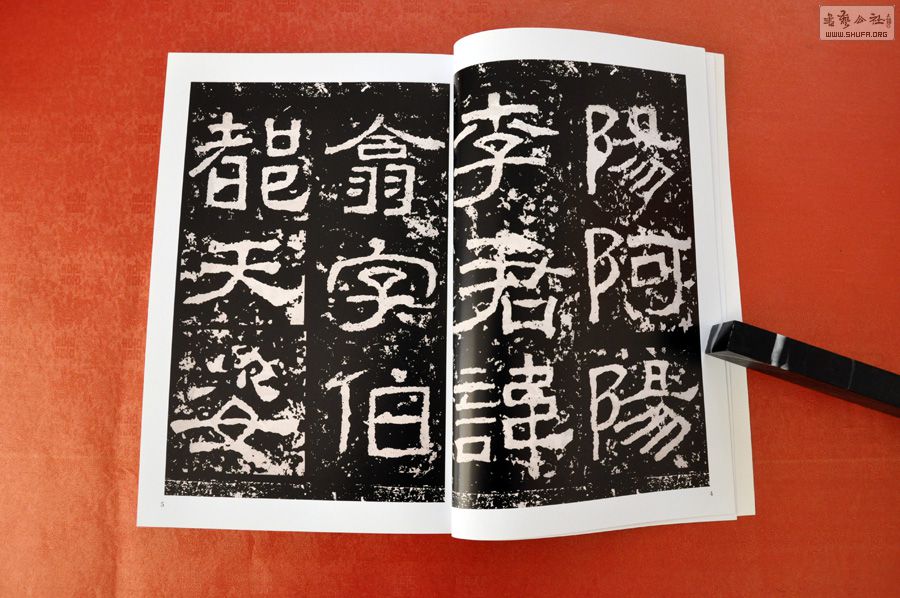 陽阿陽
李君諱
4
翕字伯
都天姿
5
書藝公社
WWW.SHUFA.ORG